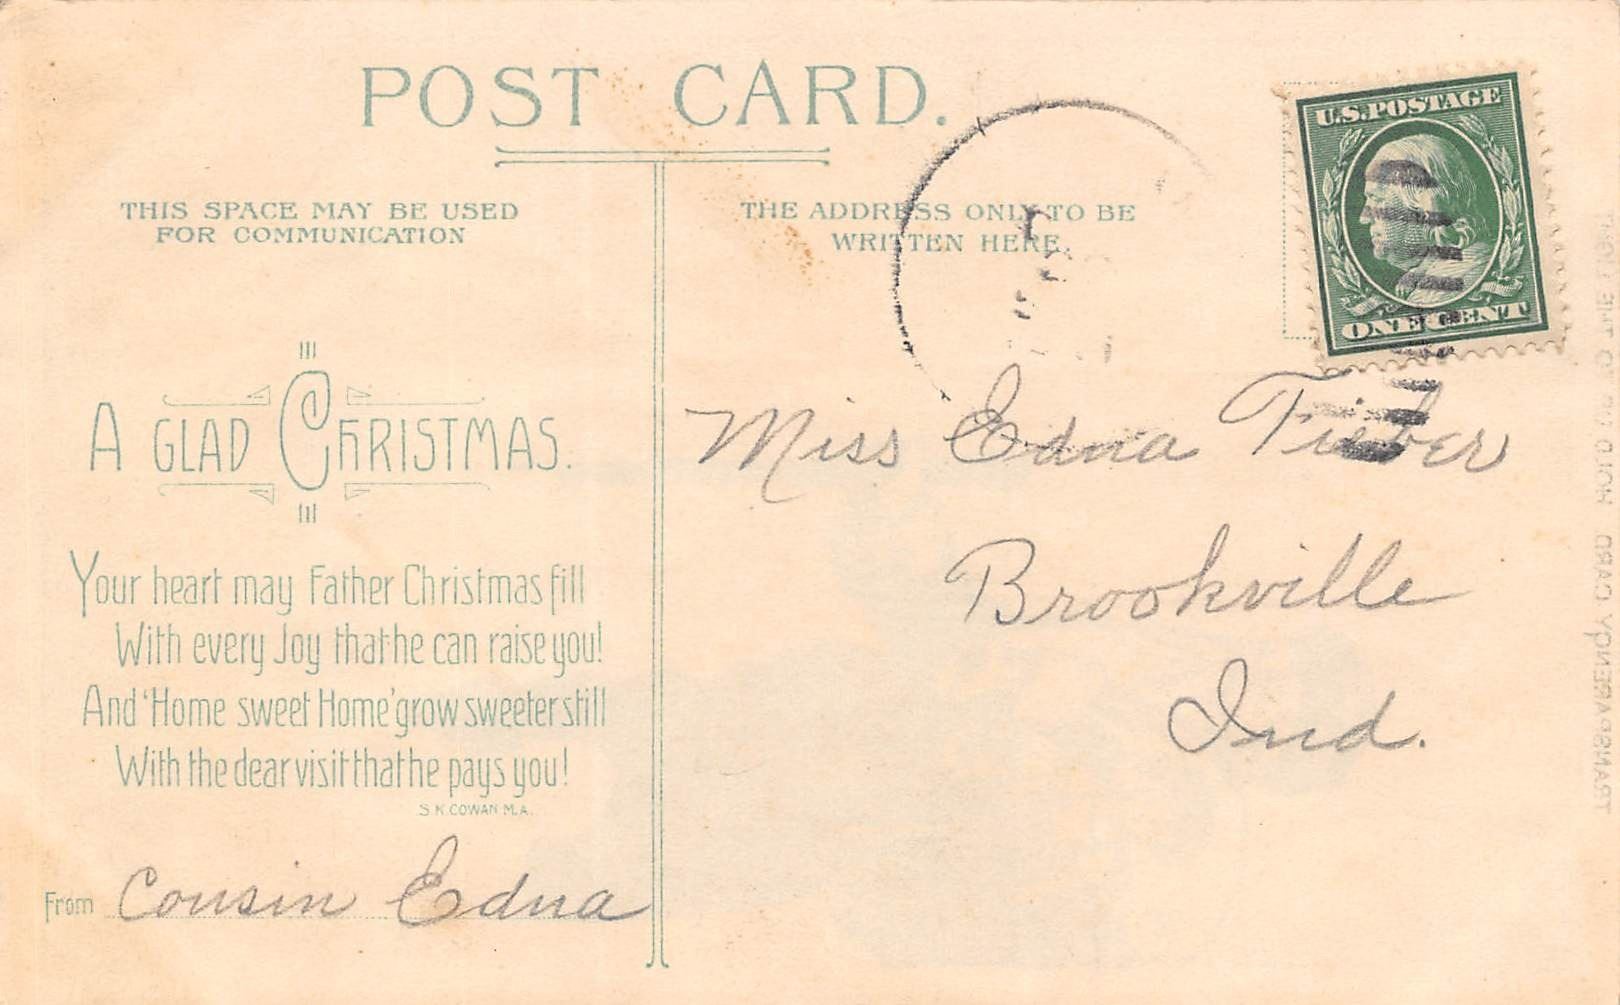 POST CARD.
THIS SPACE MAY BE USED
FOR COMMUNICATION
THE ADDRESS ONLY TO BE
WRITTEN HERE.
U.S. POSTAGE
ONE CENT
A GLAD CHRISTMAS.
Your heart may Father Christmas fill
With every Joy that he can raise you!
And 'Home sweet Home' grow sweeter still
With the dear visit that he pays you!
S. K. COWAN M.A.
From Cousin Edna
Miss Edna Fieber
Brookville
Ind.